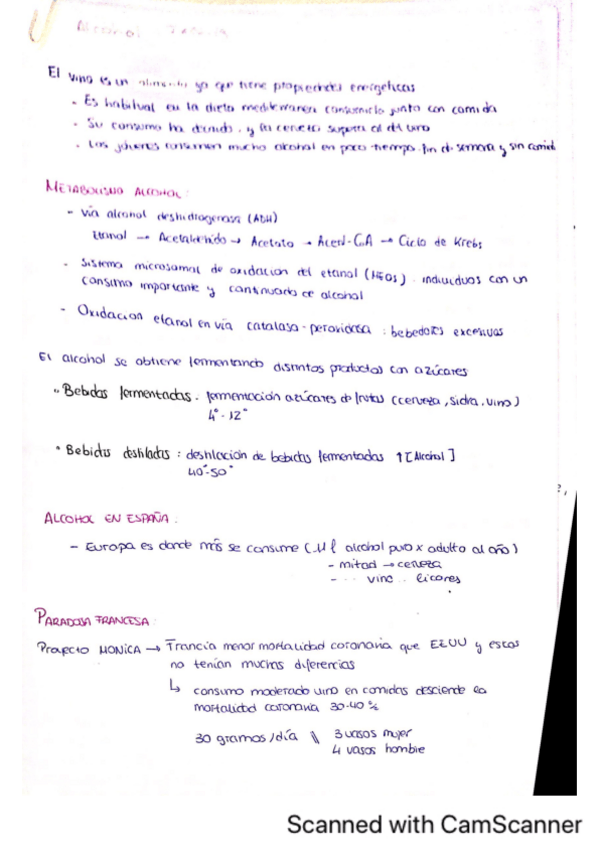 Alcohol
El vino es un alimento ya que tiene propiedades energéticas
- Es habitual en la dieta mediterranea consumirlo junto con comida
- Su consumo ha caido, y la cerveza supera al del vino
- Los jóvenes consumen mucho alcohol en poco tiempo. fin d semana y sin comid
METABOLISMO ALCOHOL:
- via alcohol deshidrogenasa (ADH)
Etanol → Acetaldehido → Acetato → Acetil-CoA → Ciclo de Krebs
- Sistema microsomal de oxidación del etanol (MEOS). individuos con un
consumo importante y continuado de alcohol
- Oxidacion etanol en vía catalasa-peroxidasa : bebedores excesivos
El alcohol se obtiene fermentando distintos productos con azúcares
• Bebidas fermentadas. fermentación azúcares de frutas (cerveza, sidra, vino)
4°-12°
• Bebidas destiladas : destilación de bebidas fermentadas ↑[Alcohol]
40°-50°
ALCOHOL EN ESPAÑA:
- Europa es donde más se consume (11 l alcohol puro x adulto al año)
- mitad → cerveza
- vino licores
PARADOJA FRANCESA:
Proyecto MONICA → Francia menor mortalidad coronaria que EEUU y estos
no tenían muchas diferencias
↳ consumo moderado vino en comidas desciende la
mortalidad coronaria 30-40%
30 gramos/día \\ 3 vasos mujer
4 vasos hombre
Scanned with CamScanner